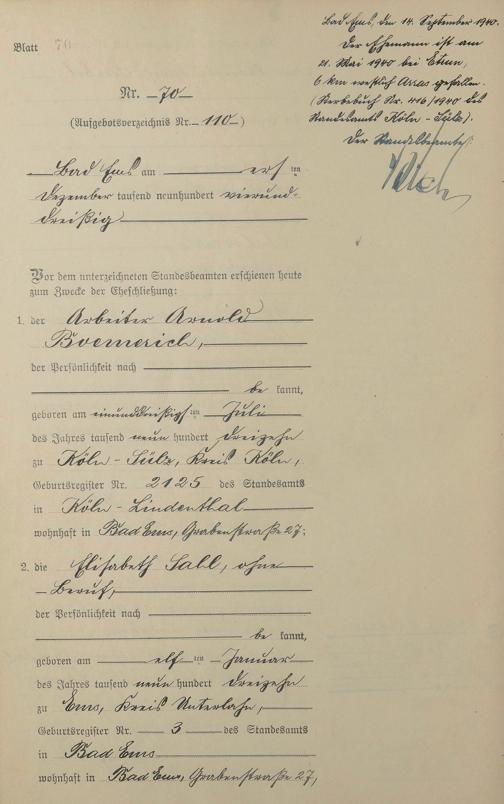 Bad Ems, den 14. September 1940.
Der Ehemann ist am
21. Mai 1940 bei Etrun,
6 km westlich Arras gefallen.
(Sterbebuch Nr. 416/1940 des
Standesamts Köln - Sülz).
Der Standesbeamte:
Blatt 70
Nr. 70
(Aufgebotsverzeichnis Nr. 110)
Bad Ems am ersten
Dezember tausend neunhundert vierund-
dreißig
Vor dem unterzeichneten Standesbeamten erschienen heute
zum Zwecke der Eheschließung:
1. der Arbeiter Arnold
Boemerich,
der Persönlichkeit nach
be kannt,
geboren am einunddreißigsten Juli
des Jahres tausend neun hundert dreizehn
zu Köln - Sülz, Kreis Köln,
Geburtsregister Nr. 2125 des Standesamts
in Köln - Lindenthal
wohnhaft in Bad Ems, Grabenstraße 27;
2. die Elisabeth Sall, ohne
Beruf,
der Persönlichkeit nach
be kannt,
geboren am elften Januar
des Jahres tausend neun hundert dreizehn
zu Ems, Kreis Unterlahn,
Geburtsregister Nr. 3 des Standesamts
in Bad Ems
wohnhaft in Bad Ems, Grabenstraße 27,